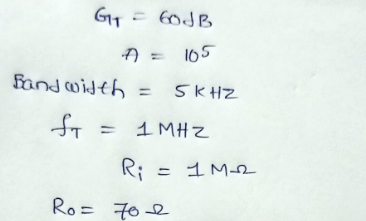 GT = 60dB
A = 10⁵
Bandwidth = 5KHZ
fT = 1MHZ
Ri = 1MΩ
Ro = 70Ω